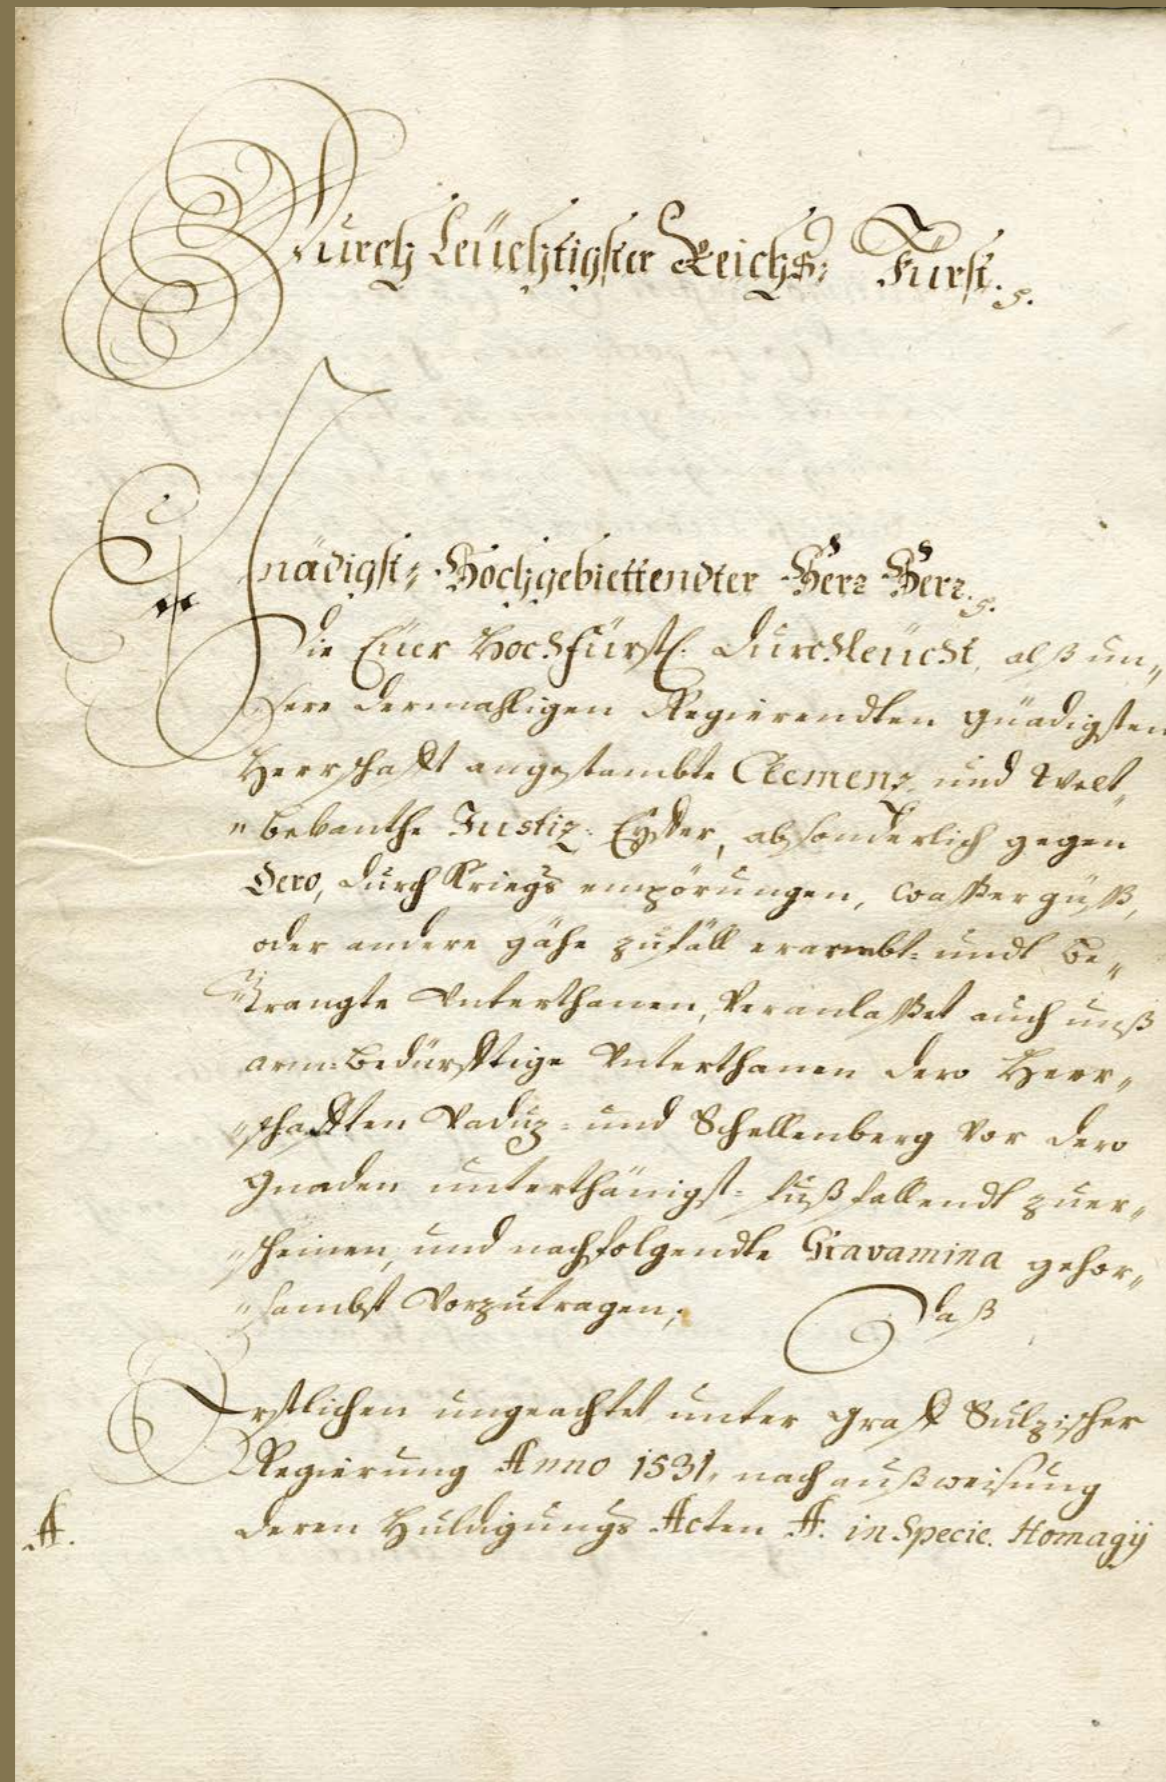 Durchleüchtigster Reichs-Fürst.
Gnädigst-Hochgebiettendter Herr Herr.
Die Eüer Hochfürstl. Durchleücht, alß un„
sere dermahligen Regierendten gnädigsten
Herrschafft angestambte Clemenz, und Welt„
„bekanthe Justiz-Eyffer, absonderlich gegen
Dero, durch Kriegs empörungen, wassergüß,
oder andere gähe zufäll erarmbt- undt be„
„trangte Unterthanen, Veranlasset auch unß
arm-bedürfftige Unterthanen dero Herr„
„schafften Vaduz- und Schellenberg vor dero
gnaden unterthänigst- fußfallendt zuer„
„scheinen, und nachfolgendte Gravamina gehor„
„sambst vorzutragen;
daß
Erstlichen ungeachtet unter graff Sulzischer
Regierung Anno 1531, nach außweisung
deren Huldigungs Acten A. in Specie. Homagij
A.